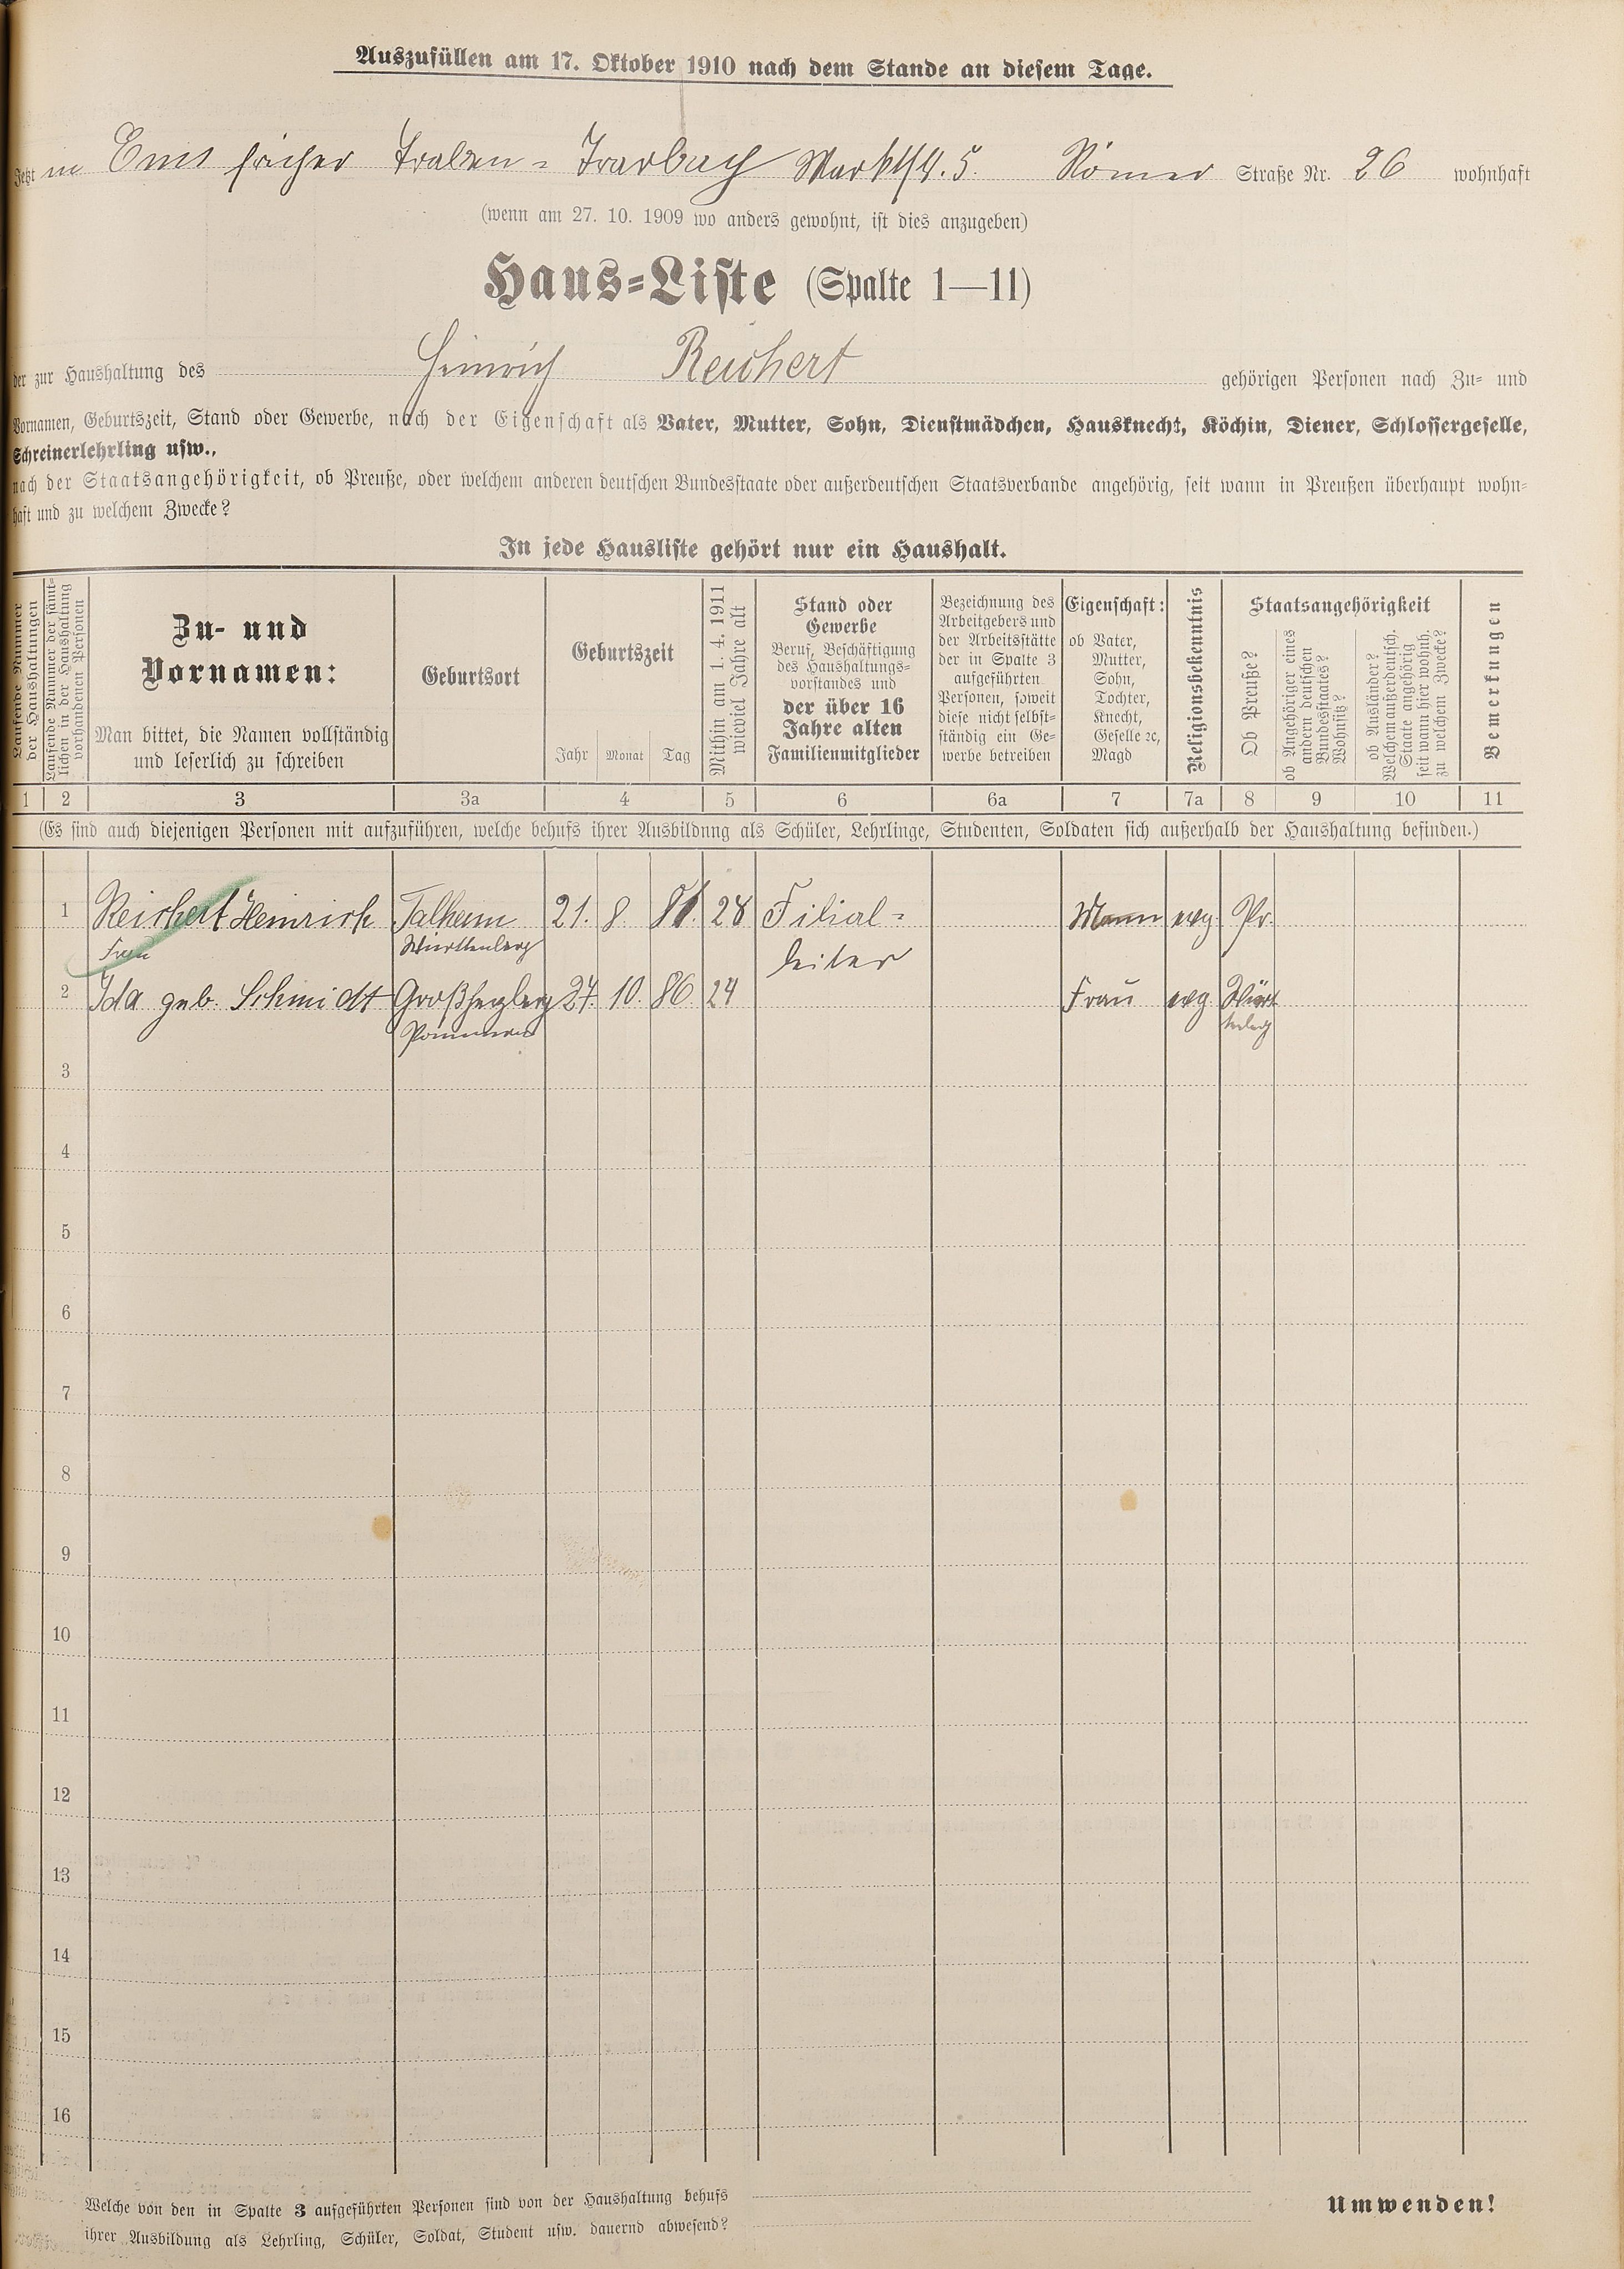 Auszufüllen am 17. Oktober 1910 nach dem Stande an diesem Tage.
Jetzt in Ems früher Traben-Trarbach Marktstr. 5. Römer Straße Nr. 26 wohnhaft
(wenn am 27. 10. 1909 wo anders gewohnt, ist dies anzugeben)
Haus-Liste (Spalte 1—11)
der zur Haushaltung des Heinrich Reichert gehörigen Personen nach Zu- und
Vornamen, Geburtszeit, Stand oder Gewerbe, nach der Eigenschaft als Vater, Mutter, Sohn, Dienstmädchen, Hausknecht, Köchin, Diener, Schlossergeselle,
Schreinerlehrling usw.,
nach der Staatsangehörigkeit, ob Preuße, oder welchem anderen deutschen Bundesstaate oder außerdeutschen Staatsverbande angehörig, seit wann in Preußen überhaupt wohn-
haft und zu welchem Zwecke?
In jede Hausliste gehört nur ein Haushalt.
Laufende Nummer
der Haushaltungen
Laufende Nummer der sämt-
lichen in der Haushaltung
vorhandenen Personen
Zu- und
Vornamen:
Man bittet, die Namen vollständig
und leserlich zu schreiben
Geburtsort
Geburtszeit
Jahr Monat Tag
Mithin am 1. 4. 1911
wieviel Jahre alt
Stand oder
Gewerbe
Beruf, Beschäftigung
des Haushaltungs-
vorstandes und
der über 16
Jahre alten
Familienmitglieder
Bezeichnung des
Arbeitgebers und
der Arbeitsstätte
der in Spalte 3
aufgeführten
Personen, soweit
diese nicht selbst-
ständig ein Ge-
werbe betreiben
Eigenschaft:
ob Vater,
Mutter,
Sohn,
Tochter,
Knecht,
Geselle ꝛc,
Magd
Religionsbekenntnis
Staatsangehörigkeit
Ob Preuße?
ob Angehöriger eines
andern deutschen
Bundesstaates?
Wohnsitz?
ob Ausländer?
Welchem außerdeutsch.
Staate angehörig
seit wann hier wohnh.
zu welchem Zwecke?
Bemerkungen
1 2 3 3a 4 5 6 6a 7 7a 8 9 10 11
(Es sind auch diejenigen Personen mit aufzuführen, welche behufs ihrer Ausbildung als Schüler, Lehrlinge, Studenten, Soldaten sich außerhalb der Haushaltung befinden.)
1 Reichert Heinrich Talheim 21. 8. 81. 28 Filial- Mann evg. Pr.
Frau Württenberg leiter
2 Ida geb. Schmidt 27. 10. 86. 24 Frau evg Würt
Pommern
3
4
5
6
7
8
9
10
11
12
13
14
15
16
Welche von den in Spalte 3 aufgeführten Personen sind von der Haushaltung behufs
ihrer Ausbildung als Lehrling, Schüler, Soldat, Student usw. dauernd abwesend?
Umwenden!